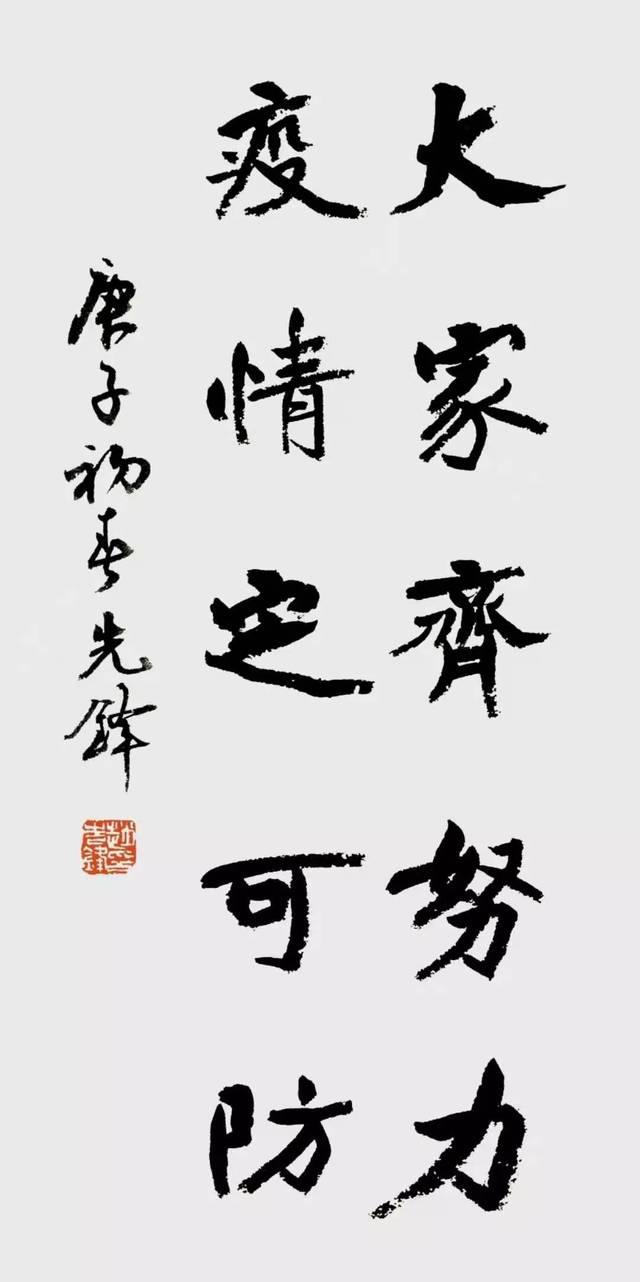 大家齊努力
疫情定可防
庚子初春先鋒